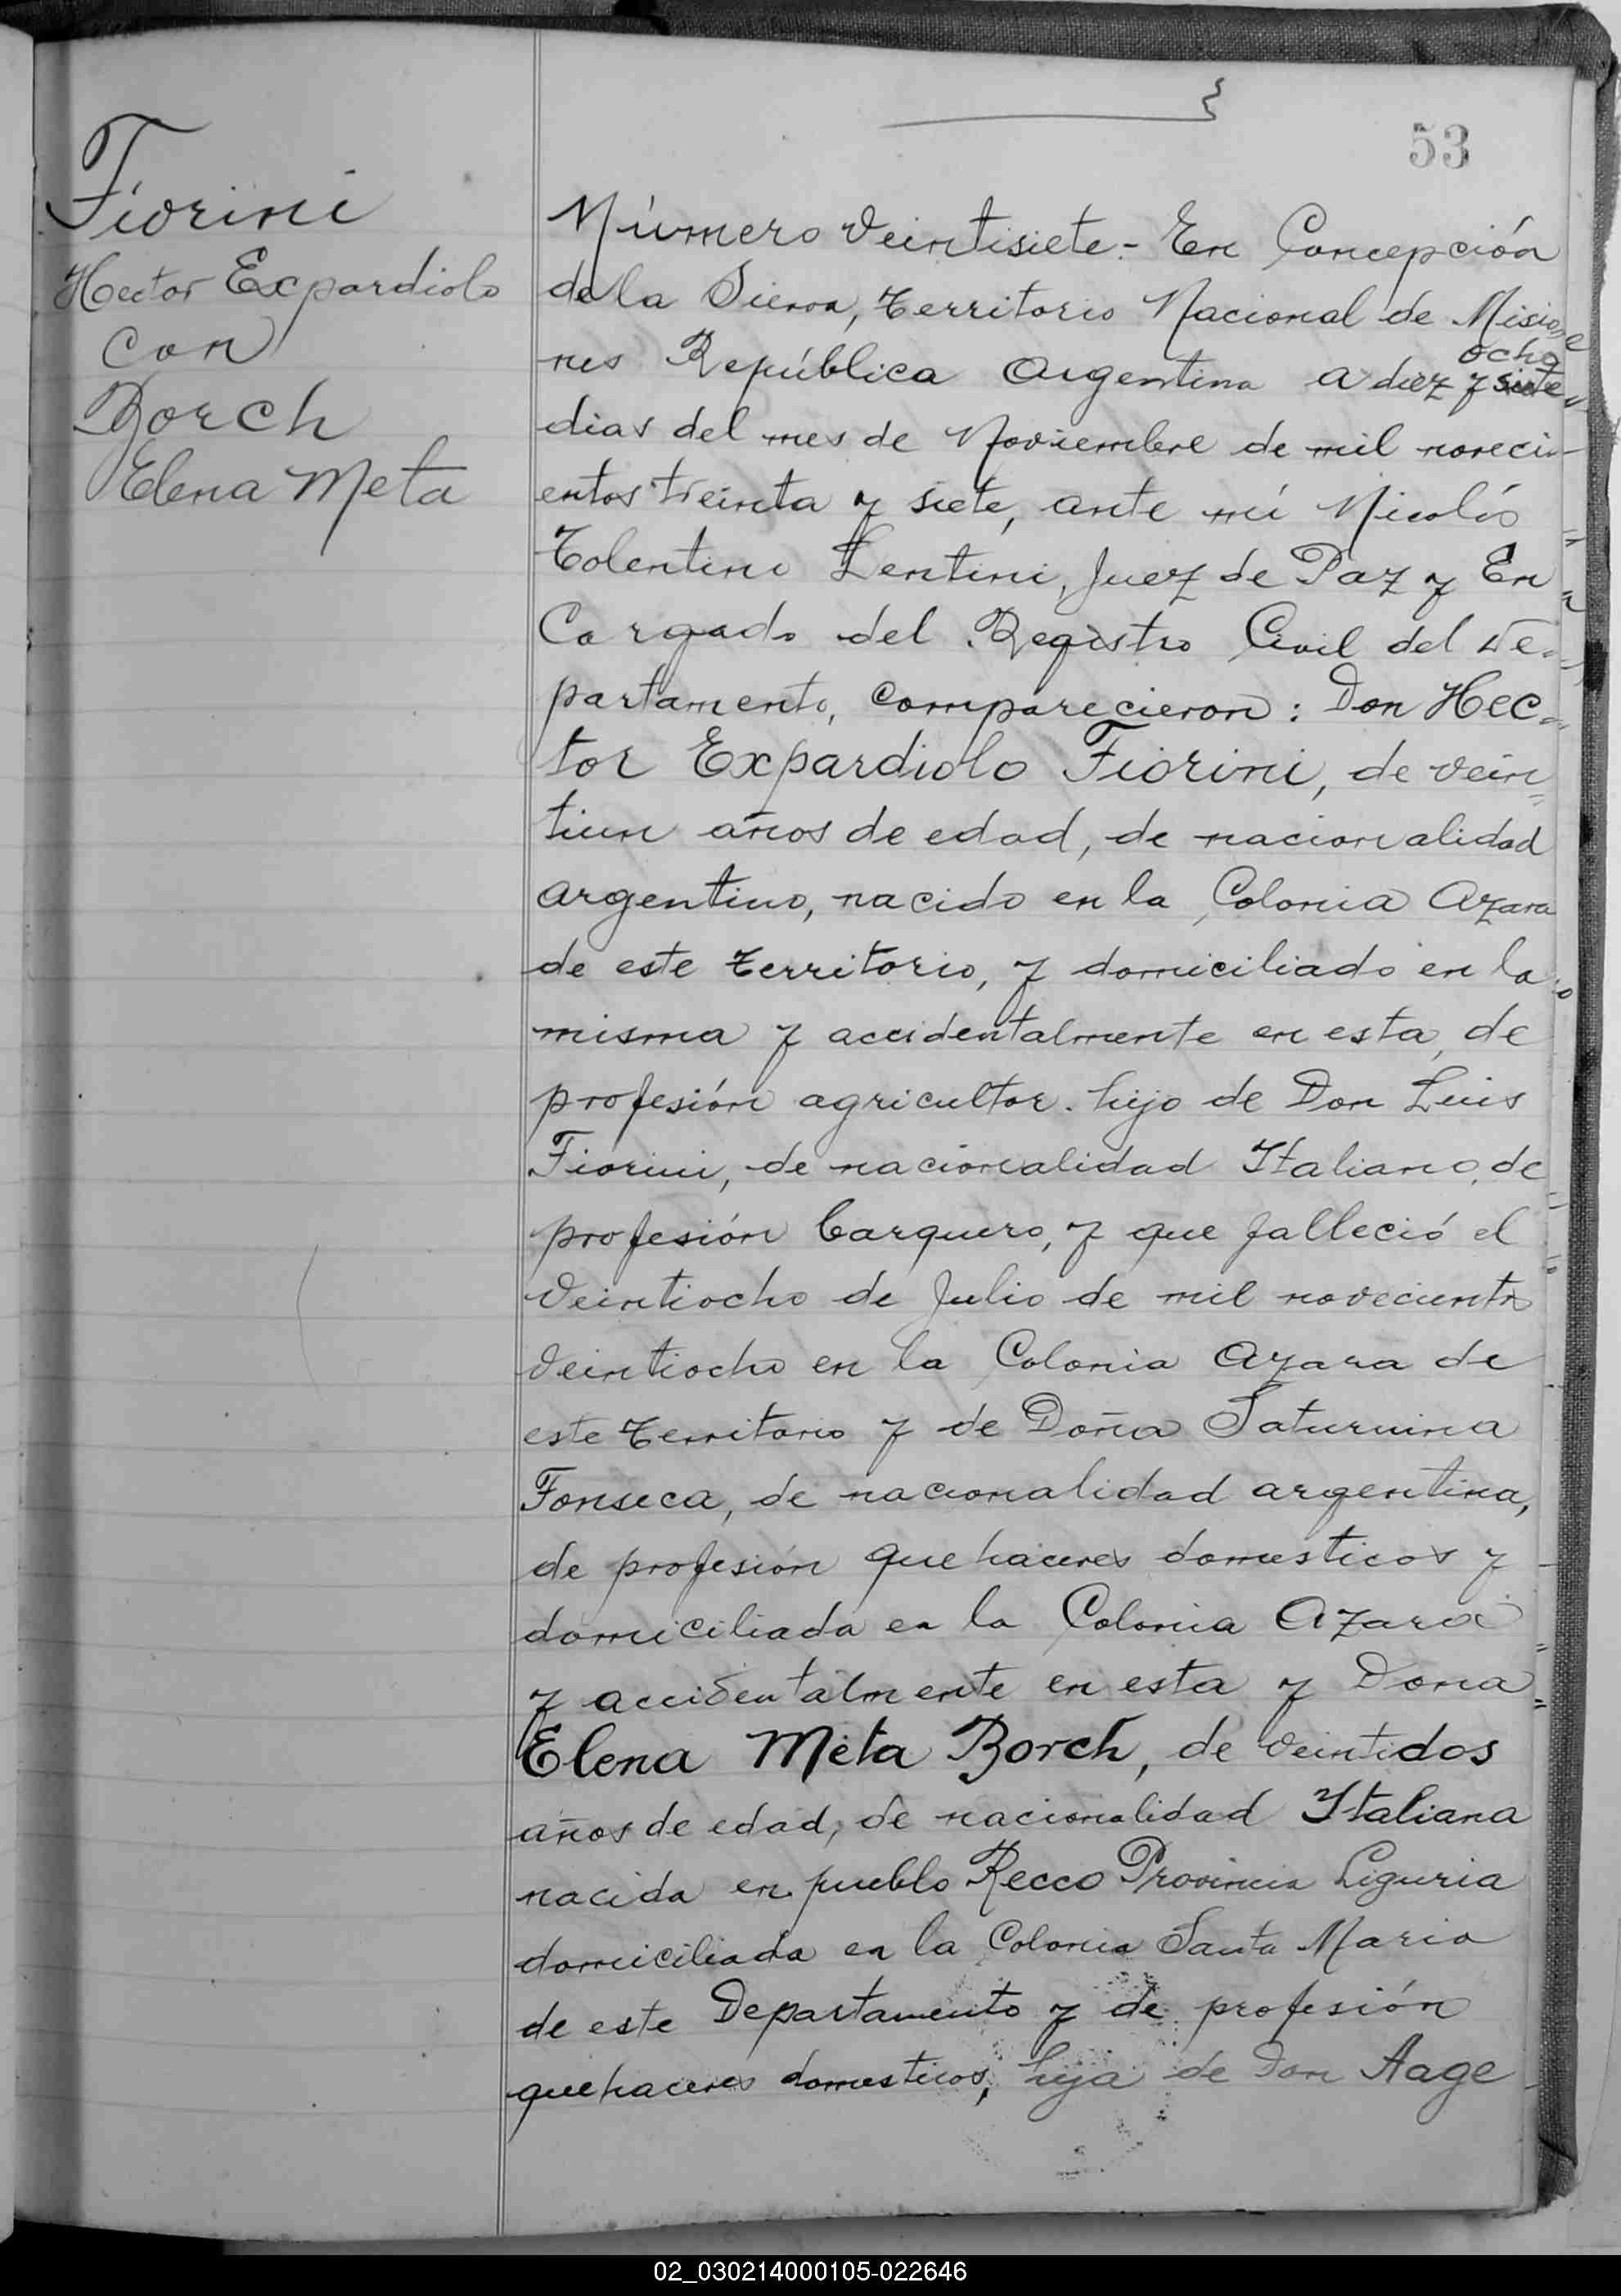 53
Fiorini
Hector Expardiolo
con
Borch
Elena Meta
Número veintisiete.- En Concepción
de la Sierra, territorio Nacional de Misio=
nes República Argentina a diez y siete
ocho
dias del mes de Noviembre de mil noveci-
entos treinta y siete, ante mí Nicolás
Tolentino Lentini, Juez de Paz y En
Cargado del Registro Civil del De=
partamento, comparecieron: Don Hec=
tor Expardiolo Fiorini, de vein=
tiun años de edad, de nacionalidad
argentino, nacido en la Colonia Azara
de este territorio, y domiciliado en la
misma y accidentalmente en esta, de
profesión agricultor. hijo de Don Luis
Fiorini, de nacionalidad Italiano, de
profesión barquero, y que falleció el
veintiocho de Julio de mil novecientos
veintiocho en la Colonia Azara de
este territorio y de Doña Saturnina
Fonseca, de nacionalidad argentina,
de profesión quehaceres domesticos y
domiciliada en la Colonia Azara
y accidentalmente en esta y Dona
Elena Meta Borch, de veintidos
años de edad, de nacionalidad Italiana
nacida en pueblo Recco Provincia Liguria
domiciliada en la Colonia Santa Maria
de este Departamento y de profesión
quehaceres domesticos, hija de Don Aage
02_030214000105-022646